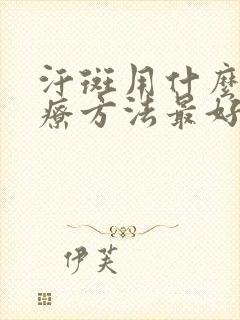 汗斑用什麼
療方法最好
伊芙